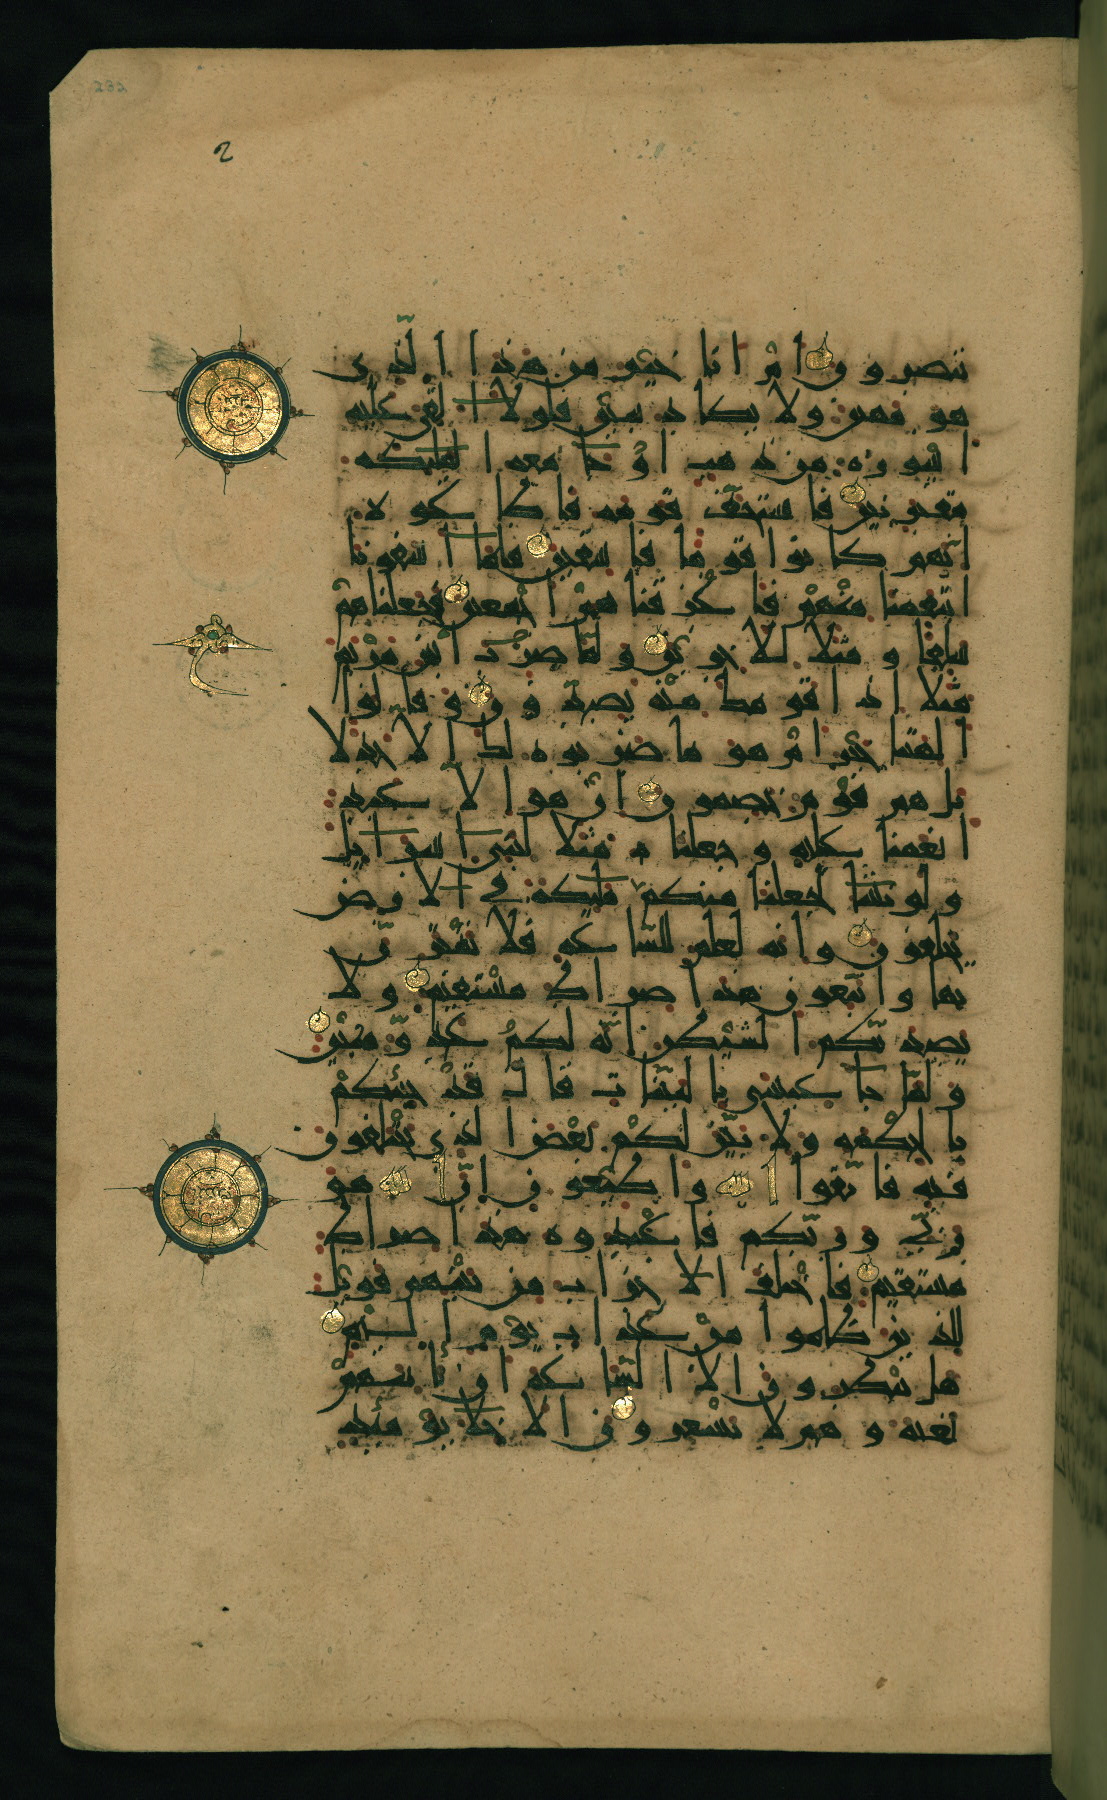 232
2
تبصرون ام انا خير من هذا الذى
هو مهين ولا يكاد يبين فلولا القى عليه
اسورة من ذهب او جا معه الملئكة
مقترنين فاستخف قومه فاطاعوه
انهم كانوا قوما فاسقين فلما اسفونا
انتقمنا منهم فاغرقناهم اجمعين فجعلناهم
سلفا ومثلا للاخرين ولما ضرب ابن مريم
مثلا اذا قومك منه يصدون وقالوا
الهتنا خير ام هو ما ضربوه لك الا جدلا
بل هم قوم خصمون ان هو الا عبد
انعمنا عليه وجعلناه مثلا لبنى اسرائيل
ولو نشا لجعلنا منكم ملئكة فى الارض
يخلفون وانه لعلم للساعة فلا تمترن
بها واتبعون هذا صراط مستقيم ولا
يصدنكم الشيطن انه لكم عدو مبين
ولما جا عيسى بالبينات قال قد جئتكم
بالحكمة ولابين لكم بعض الذى تختلفون
فيه فاتقوا الله واطيعون ان الله هو
ربى وربكم فاعبدوه هذا صراط
مستقيم فاختلف الاحزاب من بينهم فويل
للذين ظلموا من عذاب يوم اليم
هل ينظرون الا الساعة ان تاتيهم
بغتة وهم لا يشعرون الاخلا يومئذ